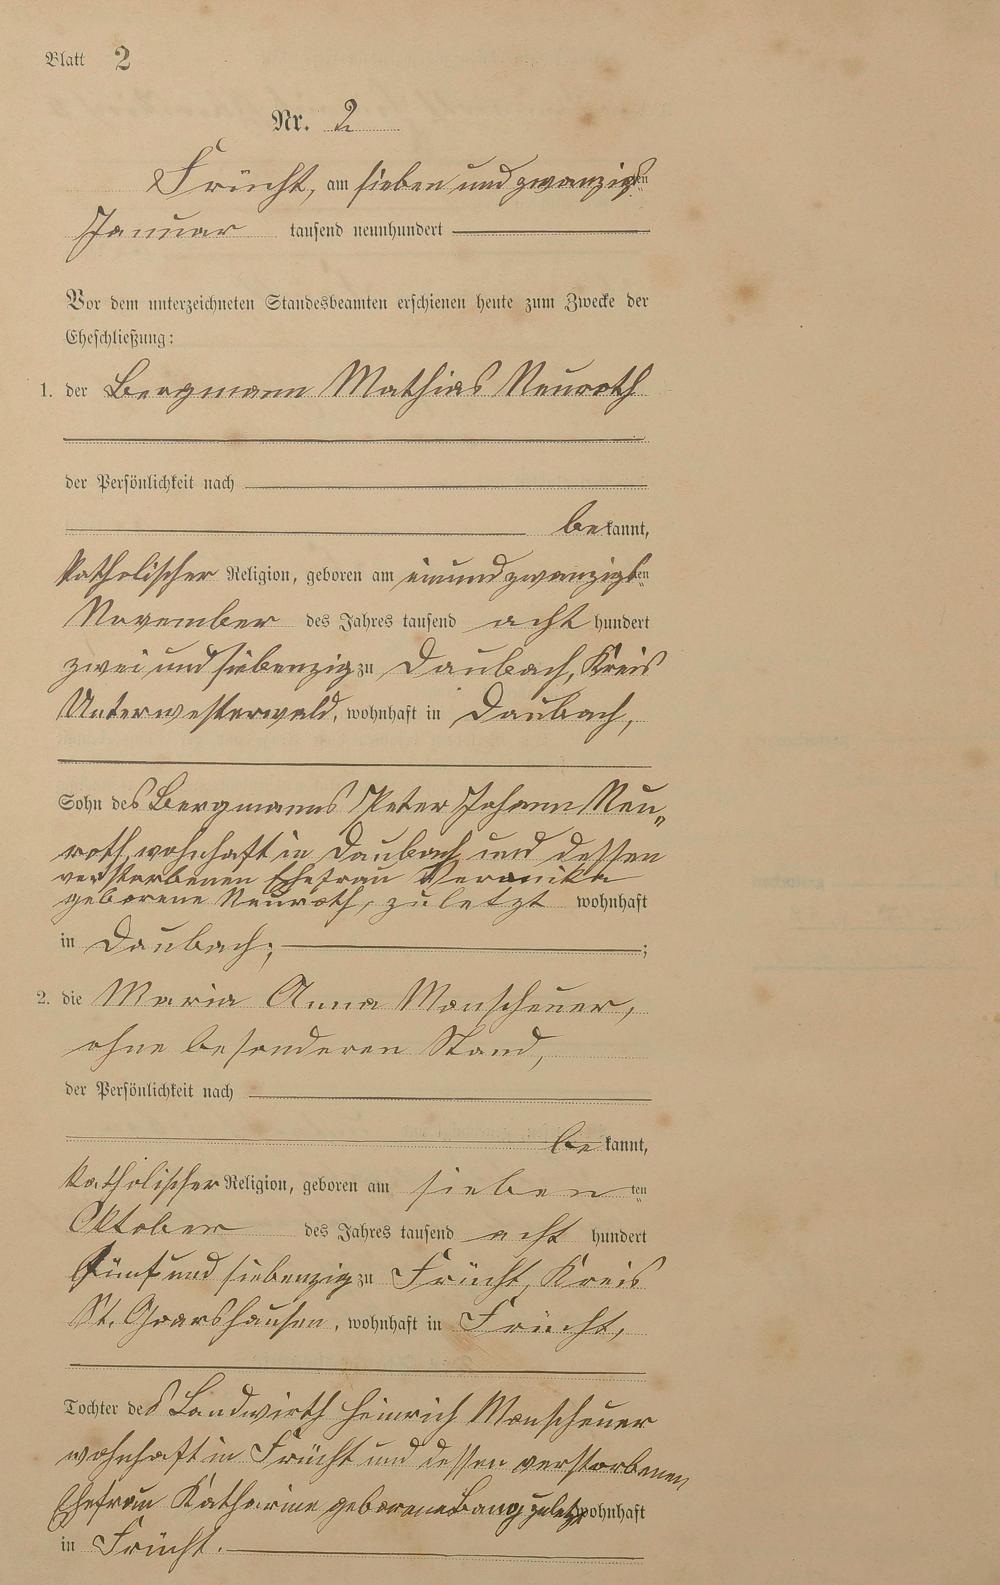 Blatt 2
Nr. 2
Frücht, am sieben und zwanzigsten
Januar tausend neunhundert
Vor dem unterzeichneten Standesbeamten erschienen heute zum Zwecke der
Eheschließung:
1. der Bergmann Mathias Neuroth
der Persönlichkeit nach
bekannt,
katholischer Religion, geboren am einundzwanzigsten
November des Jahres tausend acht hundert
zwei und siebenzig zu Daubach, Kreis
Unterwesterwald, wohnhaft in Daubach,
Sohn des Bergmanns Peter Johann Neu„
roth, wohnhaft in Daubach und dessen
verstorbenen Ehefrau Veronika
geborene Neuroth, zuletzt wohnhaft
in Daubach; ;
2. die Maria Anna Monscheuer,
ohne besonderen Stand,
der Persönlichkeit nach
bekannt,
katholischer Religion, geboren am siebenten
Oktober des Jahres tausend acht hundert
fünf und siebenzig zu Frücht, Kreis
St. Goarshausen, wohnhaft in Frücht,
Tochter des Landwirth Heinrich Monscheuer
wohnhaft in Frücht und dessen verstorbenen
Ehefrau Katharine geborene Bang zuletzt wohnhaft
in Frücht.